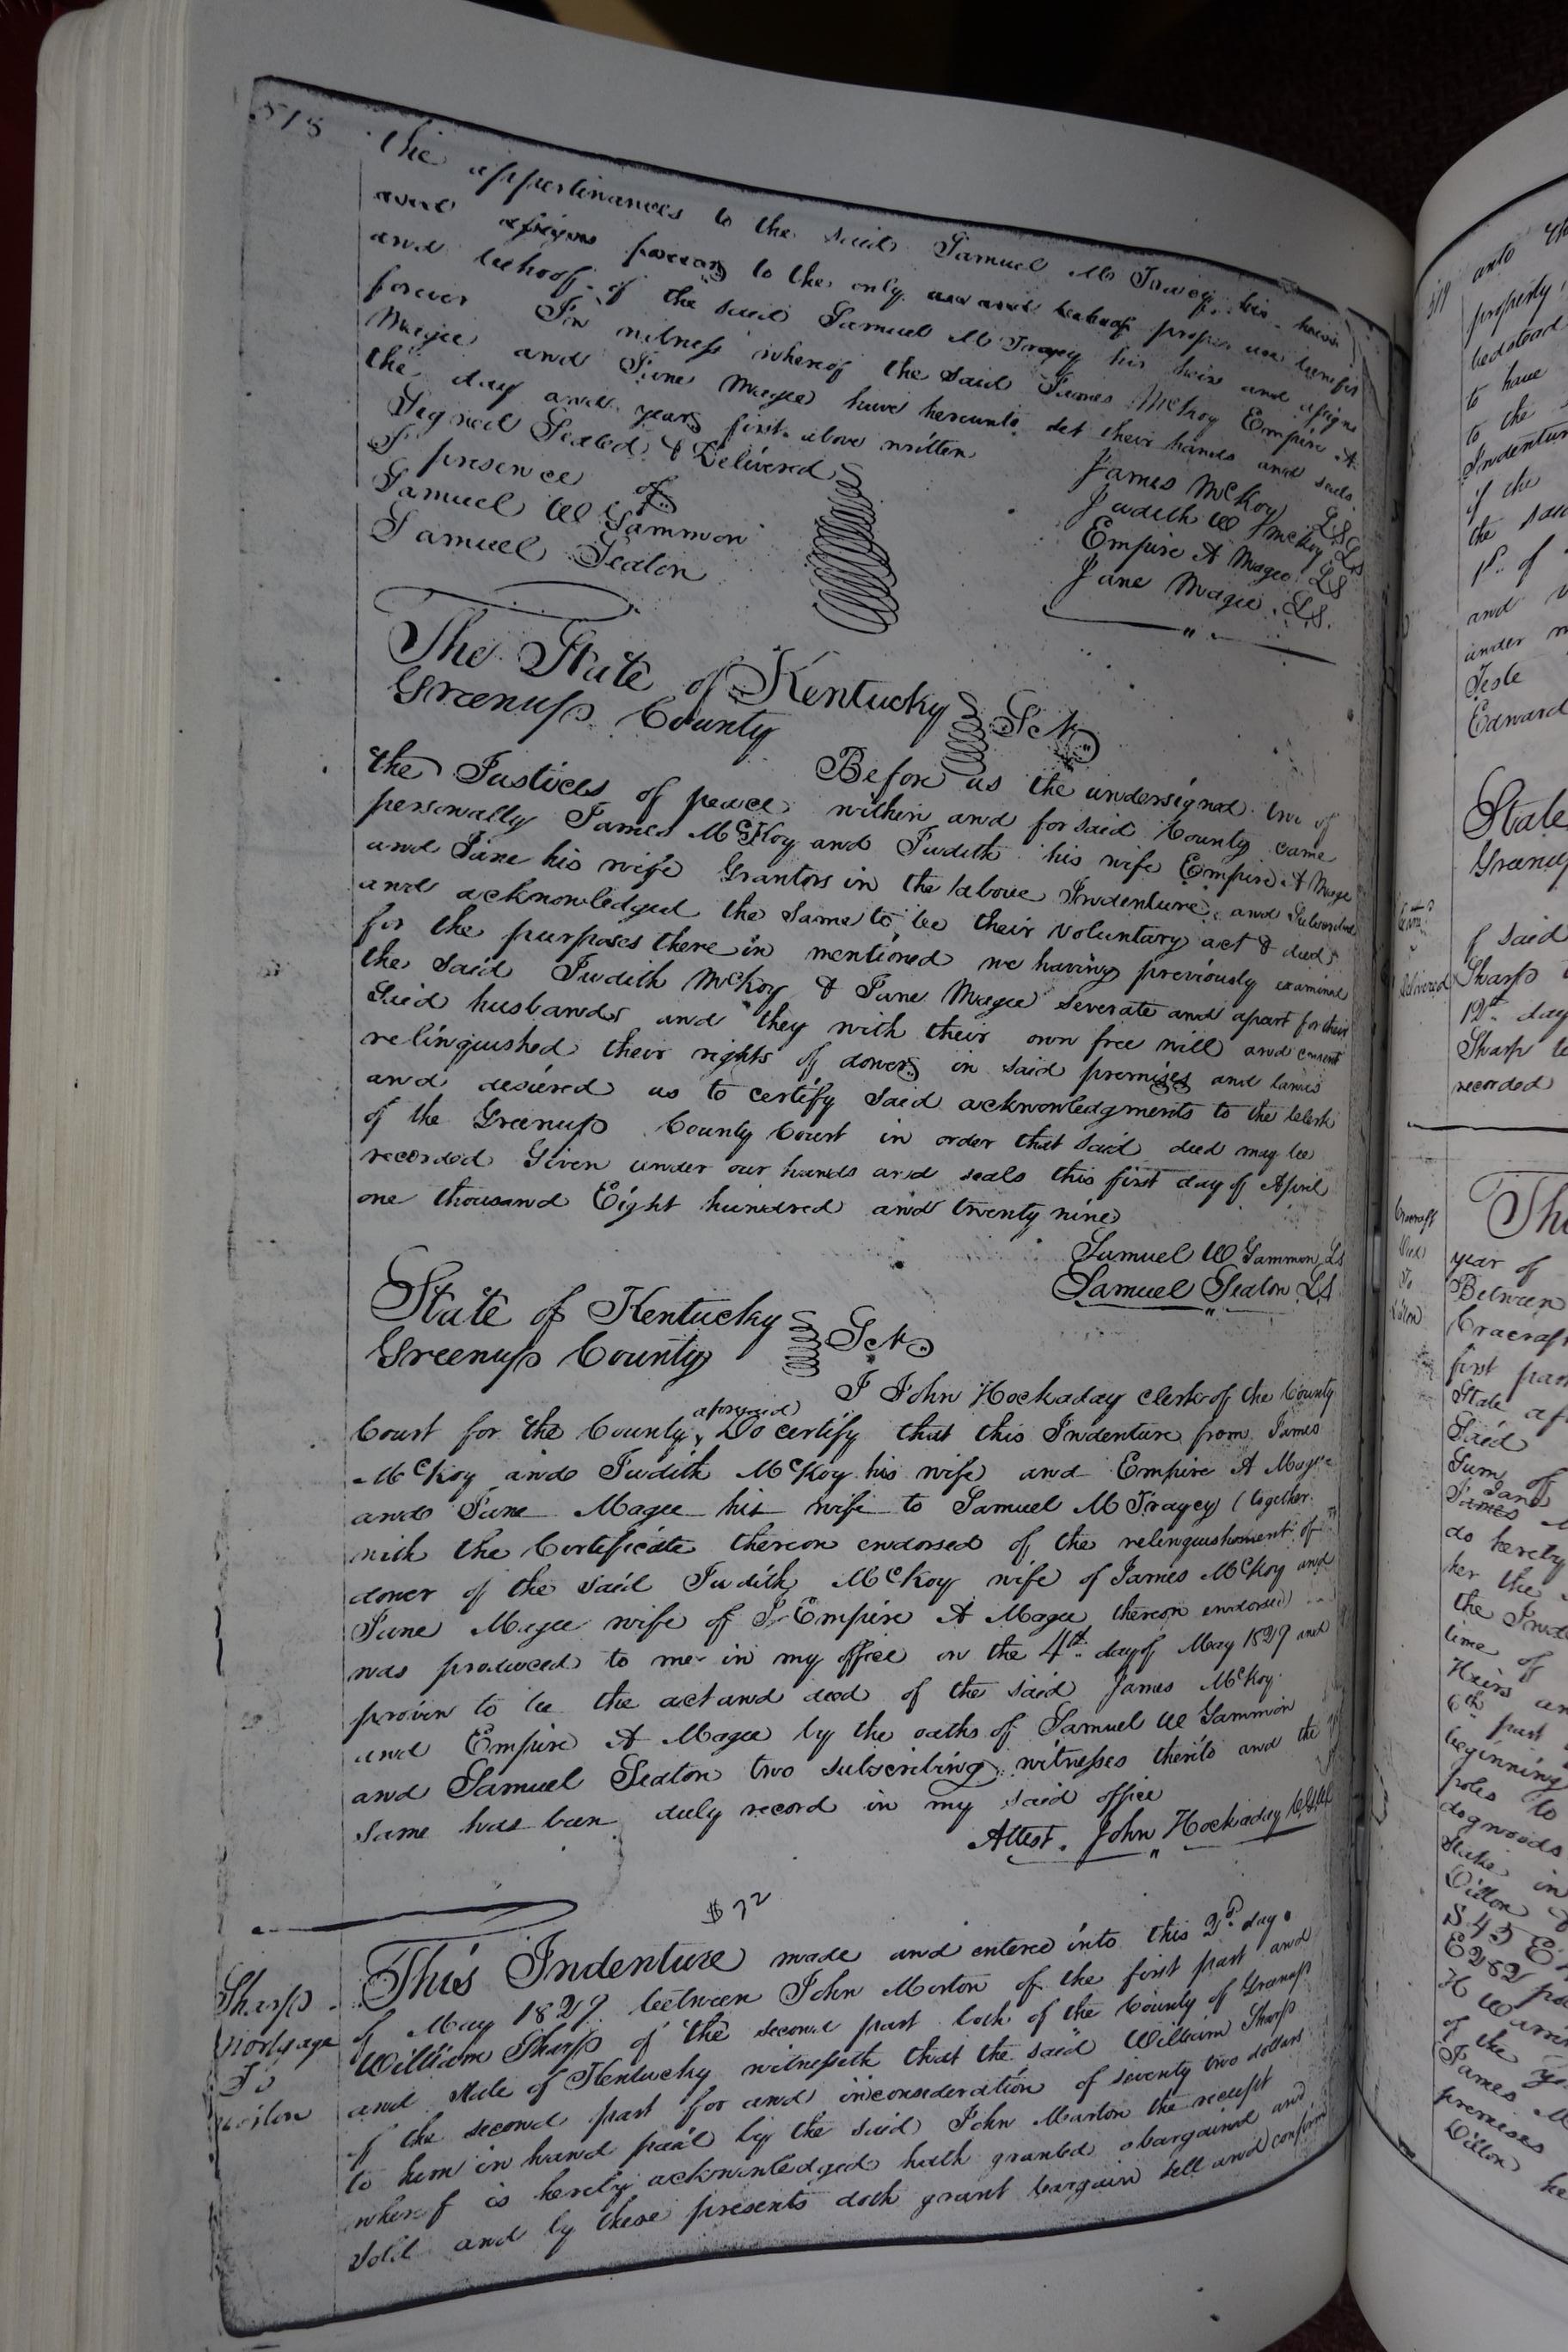 518
the appertinances to the said Samuel M Tracy his heirs
and assigns forever to the only use and behoof proper use benefit
and behoof of the said Samuel M Tracy his heirs and assigns
forever In witness whereof the said James McKoy Empire A
Magee and Jane Magee have hereunto set their hands and seals
the day and year first above written
Signed Sealed & Delivered
In presence of
Samuel W Gammon
Samuel Seaton
James McKoy LS
Judith W McKoy LS
Empire A Magee LS
Jane Magee LS.
The State of Kentucky
Greenup County Sct
Before us the undersigned two of
the Justices of peace within and for said County came
personally James McKoy and Judith his wife Empire A Magee
and Jane his wife Grantors in the above Indenture and Subscribed
and acknowledged the same to be their voluntary act & deed
for the purposes there in mentioned we having previously examined
the said Judith McKoy & Jane Magee severate and apart for their
said husbands and they with their own free will and consent
relinquished their rights of dower in said premises and lands
and desired us to certify said acknowledgments to the Clerk
of the Greenup County Court in order that said deed may be
recorded Given under our hands and seals this first day of April
one thousand Eight hundred and twenty nine
Samuel W Gammon LS
Samuel Seaton LS
State of Kentucky
Greenup County Sct
I John Hockaday clerk of the County
Court for the County aforesaid Do certify that this Indenture from James
McKoy and Judith McKoy his wife and Empire A Magee
and Jane Magee his wife to Samuel M Tracey (together
with the Certificate thereon endorsed of the relinquishment of
dower of the said Judith McKoy wife of James McKoy and
Jane Magee wife of Empire A Magee thereon endorsed)
was produced to me in my office on the 4th day of May 1829 and
proven to be the act and deed of the said James McKoy
and Empire A Magee by the oaths of Samuel W Gammon
and Samuel Seaton two subscribing witnesses thereto and the
same has been duly record in my said office
Attest. John Hockaday
$72
Sharp
Mortgage
To
This Indenture made and entered into this 2d day
of May 1829 between John Morton of the first part and
William Sharp of the second part both of the County of Greenup
and State of Kentucky witnesseth that the said William Sharp
of the second part for and inconsideration of seventy two dollars
to him in hand paid by the said John Morton the receipt
whereof is hereby acknowledged hath granted bargained and
sold and by these presents doth grant bargain sell and confirm
519
unto
property
bedstead
to have
to the
Indenture
if the
the said
of
and
under
Teste
Edward
State
Greenup
of said
Delivered
Sharp
12th day
Sharp
recorded
Cracraft
Deed
To
year of
Between
Cracraft
first part
State
Said
Sum of
James
do hereby
her the
the
time of
Heirs
6th part
beginning
poles to
dogwoods
Stake in
Dillon
S 45 E
E 262
H
of the
James
premises
Dillon